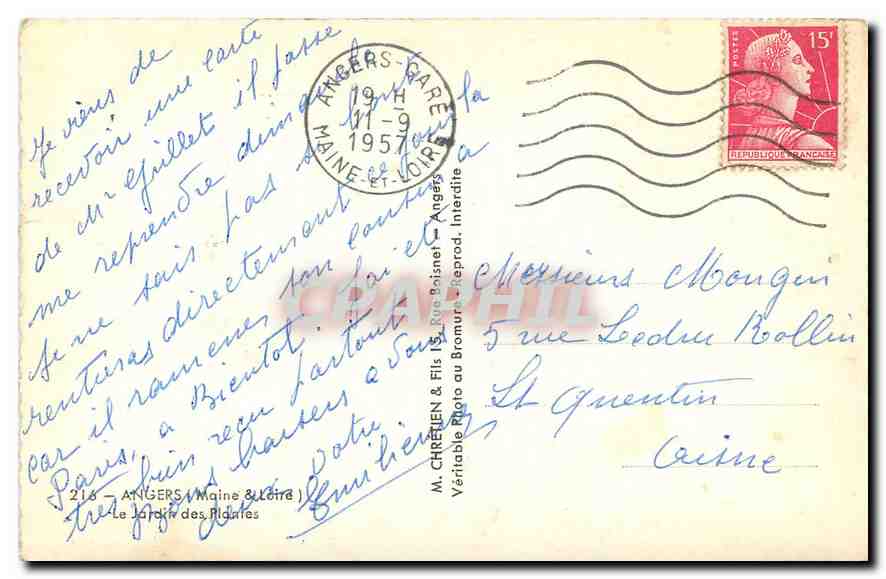 Je viens de
recevoir une carte
de Mr Guillet il passe
me reprendre dimanche
Je ne sais pas si
rentieras directement ce jour la
car il ramenes son cousin a
Paris, a Bientôt. j'ai eté
tres bien recu partout
Bons baisers a Vous
deux Votre
Emilienne
216 — ANGERS (Maine & Loire)
Le Jardin des Plantes
M. CHRETIEN & Fils 15, Rue Boisnet — Angers
Véritable Photo au Bromure. Reprod. Interdite
ANGERS-GARE
19 H
11-9
1957
MAINE-ET-LOIRE
POSTES
15F
REPUBLIQUE FRANÇAISE
Messieurs Mougin
5 rue Ledru Rollin
St Quentin
Aisne
CPAPHIL